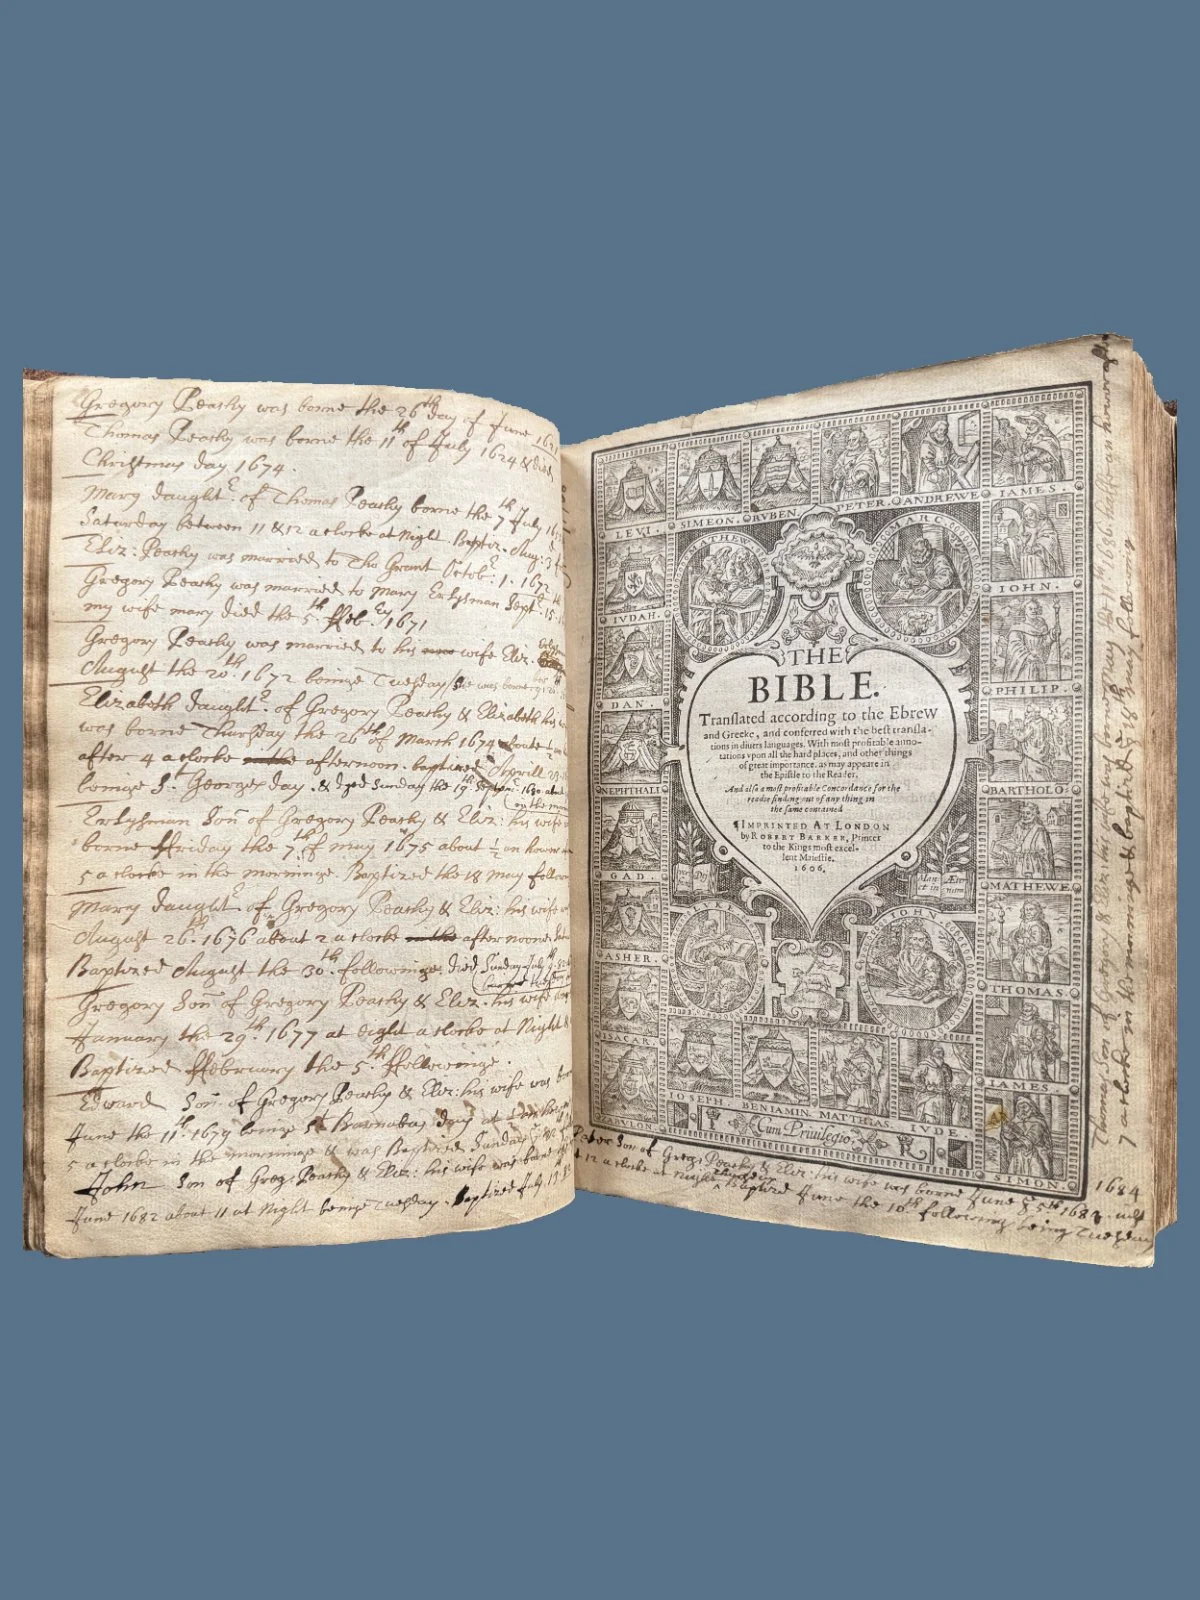 Gregory Peachy was borne the 26th day of June
Thomas Peachy was borne the 11th of July 1624 & died
Christmas day 1674.
Mary daught.r of Thomas Peachy borne the 7th July
Saturday between 11 & 12 a clocke at Night. Baptiz. Aug:
Eliz: Peachy was married to Tho Grant Octob.r 1. 1672
Gregory Peachy was married to Mary Erlysman Sept. 15.
my wife mary died the 5.th ffeb.ry 1671
Gregory Peachy was married to his wife Eliz.
August the 20.th 1672 beinge Tuesday she was borne
Elizabeth daught.r of Gregory Peachy & Elizabeth his
was borne Thursday the 26th of March 1674 aboute
after 4 a clocke afternoon. baptized Aprill 23
beinge St. Georges day. & dyed Sunday the 19.th Septem: 1680
Erlysman Son of Gregory Peachy & Eliz: his wife
borne ffriday the 7th of may 1675 about ½ an hower
5 a clocke in the morninge. Baptized the 18 may
Mary daught.r of Gregory Peachy & Eliz: his wife
August 26.th 1676 about 2 a clocke afternoone
Baptized August the 30.th followinge. died Sunday July
Gregory Son of Gregory Peachy & Eliz. his wife
January the 29.th 1677 at eight a clocke at Night
Baptized ffebruary the 5.th ffollowinge.
Edward Son of Gregory Peachy & Eliz: his wife was
June the 11.th 1679 beinge St Barnabas day at
5 a clocke in the morninge & was Baptized Sunday
John Son of Greg: Peachy & Eliz: his wife was borne
June 1682 about 11 at Night beinge Tuesday. Baptized July.
LEVI.
SIMEON.
RVBEN.
PETER.
ANDREWE
IAMES.
MATHEW
MARC.
IVDAH.
IOHN.
DAN.
PHILIP.
THE
BIBLE.
Translated according to the Ebrew
and Greeke, and conferred with the best transla-
tions in diuers languages. With most profitable anno-
tations vpon all the hard places, and other things
of great importance, as may appeare in
the Epistle to the Reader.
And also a most profitable Concordance for the
readie finding out of any thing in
the same contained
¶IMPRINTED AT LONDON
by ROBERT BARKER, Printer
to the Kings most excel-
lent Maiestie.
1606.
NEPHTHALI
BARTHOLO:
GAD.
MATHEWE
ASHER.
IOHN
THOMAS.
ISACAR.
IAMES
ZABVLON.
IOSEPH.
BENIAMIN.
MATTHIAS.
IVDE.
SIMON.
Cum Priuilegio.
Peter Son of Greg: Peachy & Eliz: his wife was borne June
12 a clocke at Night Baptized June the 10.th following being Tuesday
1684
Thomas Son of Gregory & Eliz: his wife was borne May the 11th 1686 halfe an hower
7 a clocke in the morninge & baptized 18th may following